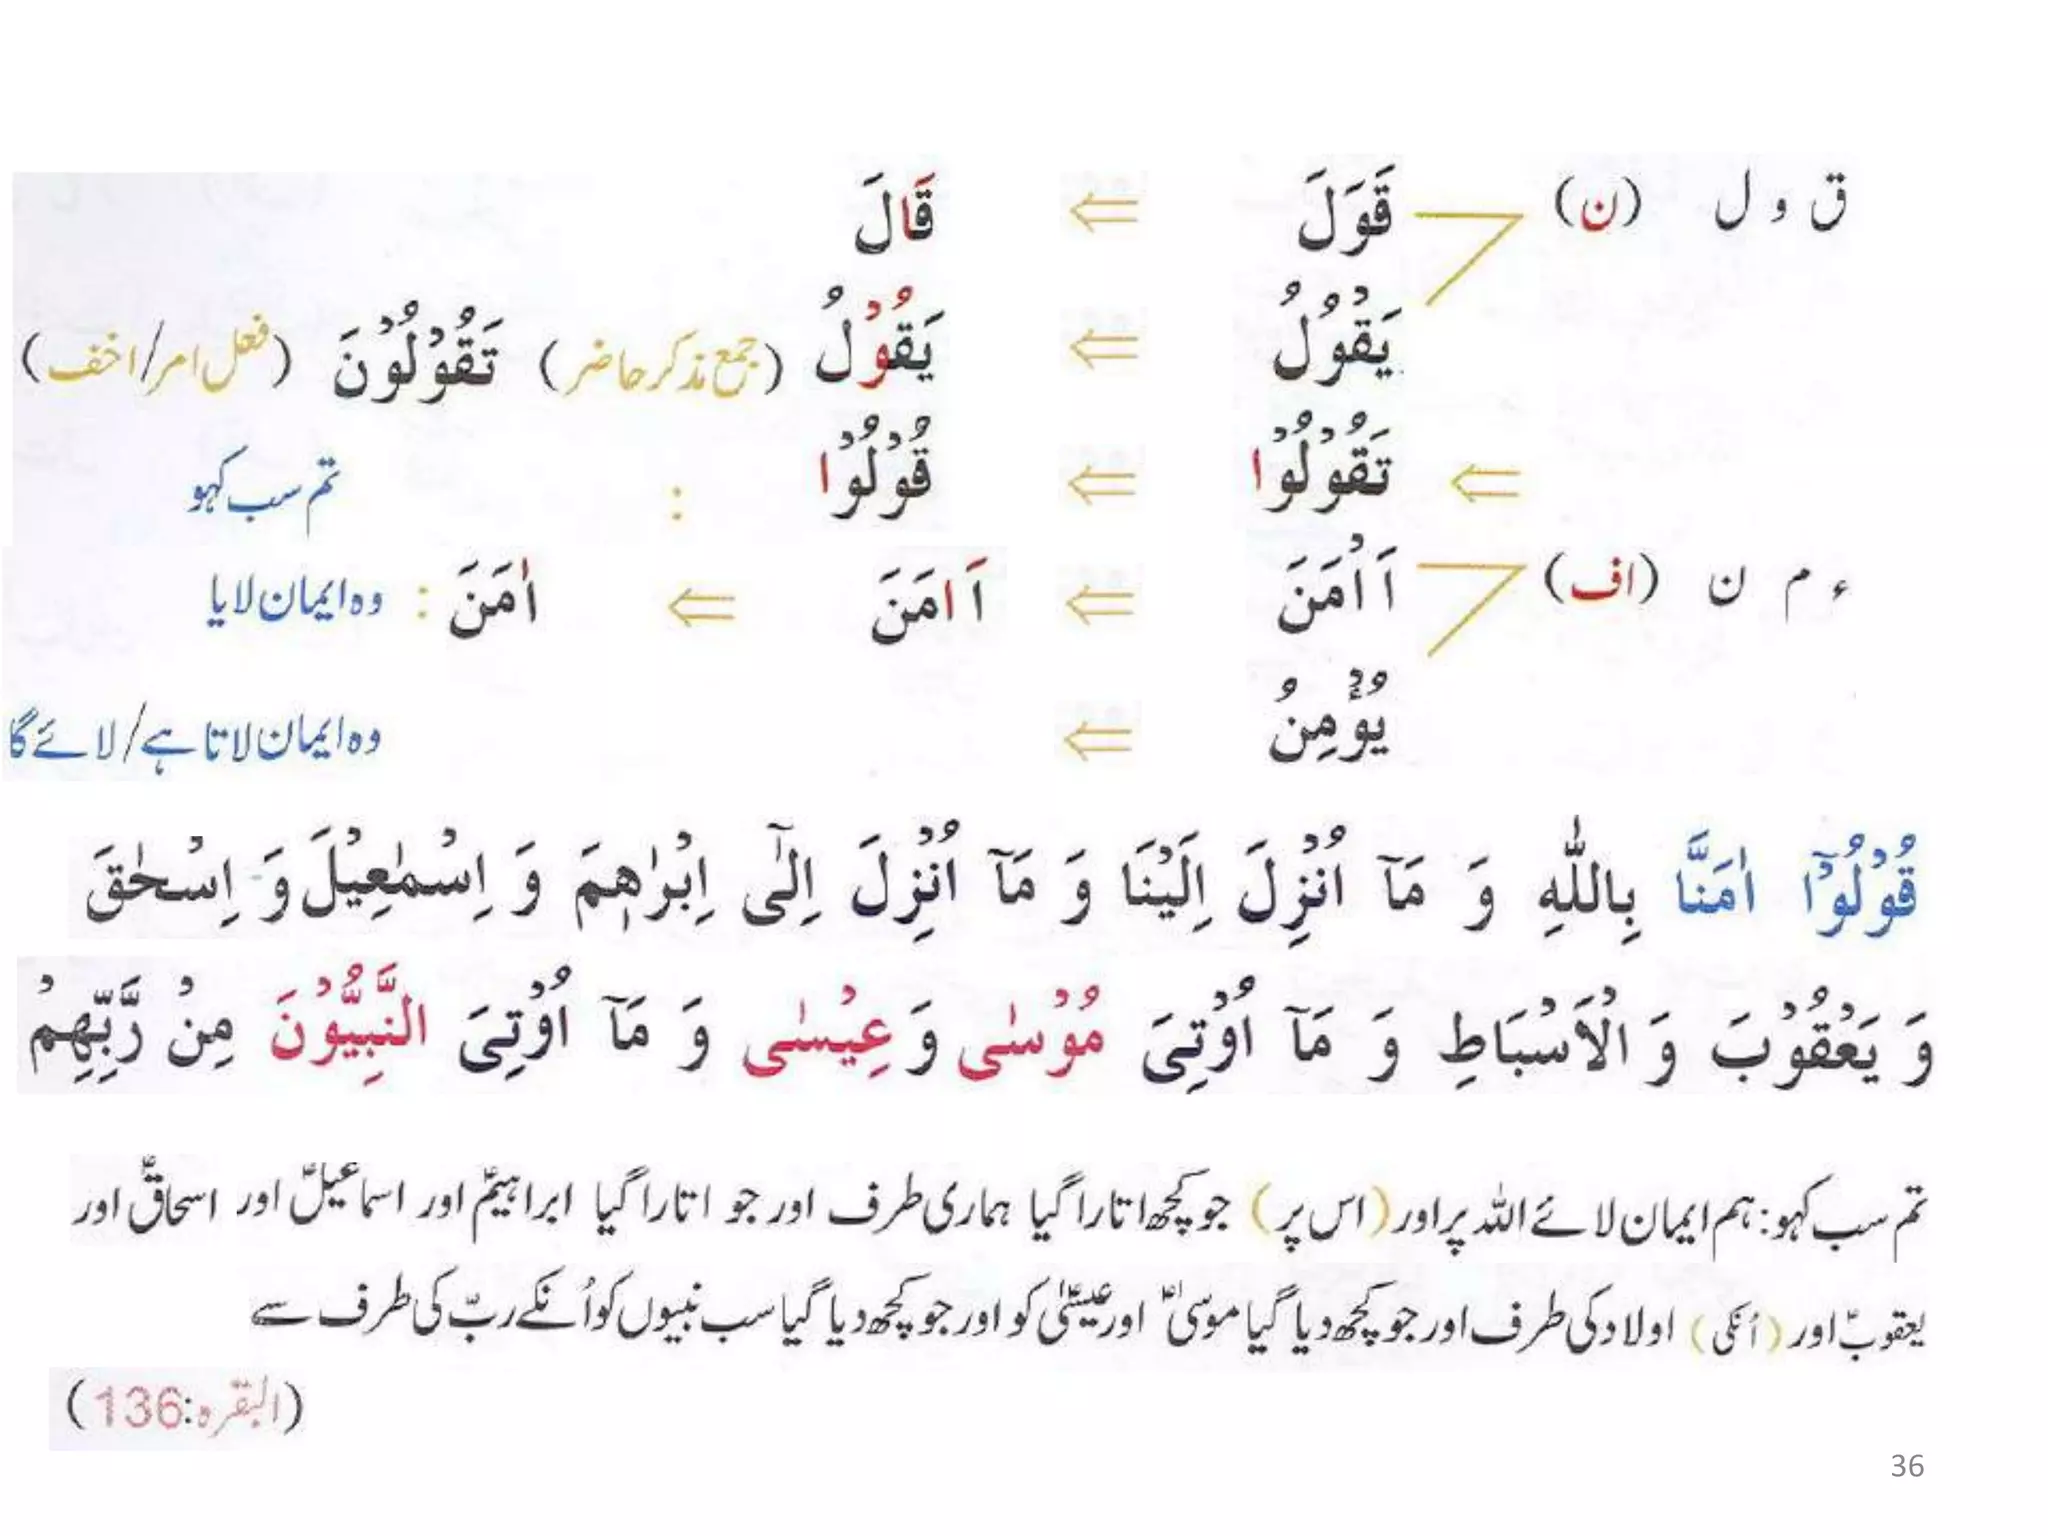 ق و ل (ن) قَوَلَ ⇐ قَالَ
يَقْوُلُ ⇐ يَقُوْلُ (جمع مذکر حاضر) تَقُوْلُوْنَ (فعل امر/اخف)
⇐ تَقُوْلُوْا ⇐ قُوْلُوْا : تم سب کہو
ء م ن (اف) اَ اْمَنَ ⇐ اَ امَنَ ⇐ اٰمَنَ : وہ ایمان لایا
يُؤْمِنُ ⇐ وہ ایمان لاتا ہے/لائے گا
قُوْلُوْٓا اٰمَنَّا بِاللّٰهِ وَ مَآ اُنْزِلَ اِلَيْنَا وَ مَآ اُنْزِلَ اِلٰٓى اِبْرٰهٖمَ وَ اِسْمٰعِيْلَ وَ اِسْحٰقَ
وَ يَعْقُوْبَ وَ الْاَسْبَاطِ وَ مَآ اُوْتِىَ مُوْسٰى وَ عِيْسٰى وَ مَآ اُوْتِىَ النَّبِيُّوْنَ مِنْ رَّبِّهِمْ
تم سب کہو: ہم ایمان لائے اللہ پر اور (اس پر) جو کچھ اتارا گیا ہماری طرف اور جو اتارا گیا ابراہیمؑ اور اسماعیلؑ اور اسحاقؑ اور
یعقوبؑ اور (اُنکی) اولاد کی طرف اور جو کچھ دیا گیا موسیٰؑ اور عیسیٰؑ کو اور جو کچھ دیا گیا سب نبیوں کو اُنکے ربّ کی طرف سے
(البقرہ:136)
36